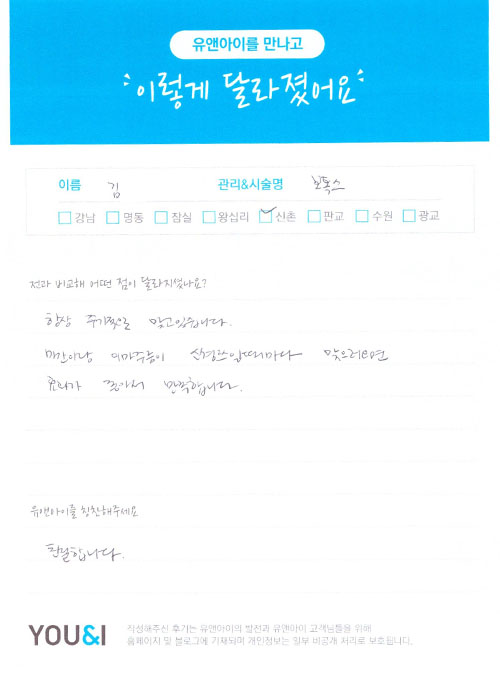 유앤아이를 만나고
이렇게 달라졌어요
이름 김 관리&시술명 보톡스
강남 명동 잠실 왕십리 신촌 판교 수원 광교
전과 비교해 어떤 점이 달라지셨나요?
항상 주기적으로 맞고있습니다.
미간이랑 이마주름이 신경쓰일때마다 맞으러오면
효과가 좋아서 만족합니다.
유앤아이를 칭찬해주세요
친절합니다.
YOU&I
작성해주신 후기는 유앤아이의 발전과 유앤아이 고객님들을 위해
홈페이지 및 블로그에 기재되며 개인정보는 일부 비공개 처리로 보호됩니다.